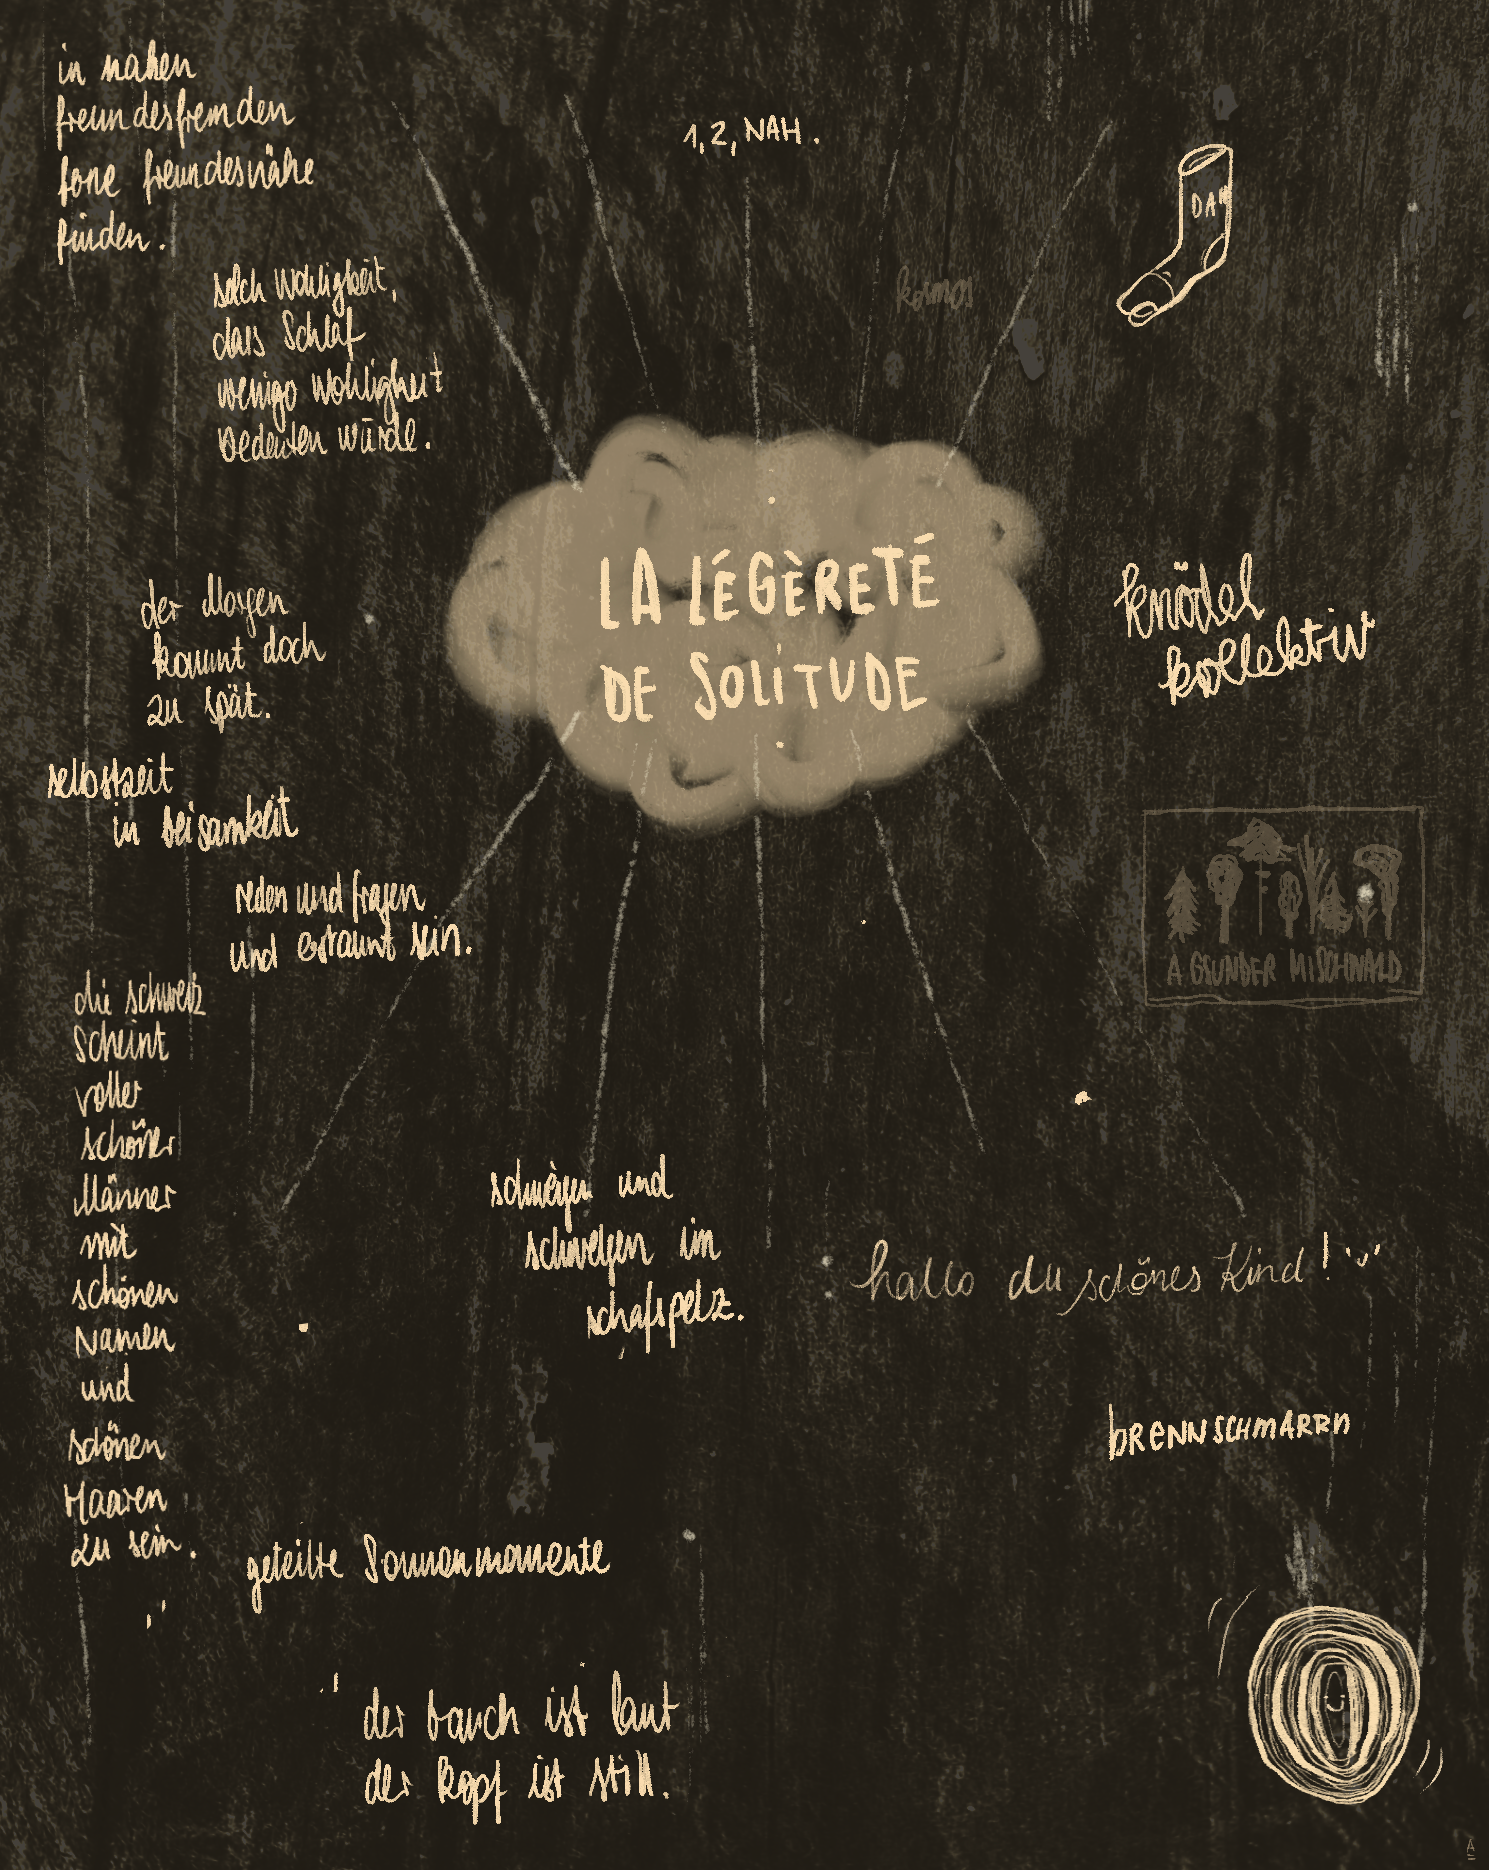 in nahen
freundesfremden
fone freundesnähe
finden.
solch Wohligkeit,
dass Schlaf
weniger Wohligkeit
bedeuten würde.
1, 2, NAH.
kosmos
DAH
LA LÉGÈRETÉ
DE SOLITUDE
der Morgen
kommt doch
zu spät.
knödel
kollektiv
selbstzeit
in beisamkeit
reden und fragen
und erstaunt sein.
A GSUNDER MISCHWALD
die schweiz
scheint
voller
schöner
Männer
mit
schönen
Namen
und
schönen
Haaren
zu sein.
schweigen und
schwelgen im
schafspelz.
hallo du schönes Kind!
BRENNSCHMARRN
geteilte Sonnenmomente
der bauch ist laut
der kopf ist still.
A